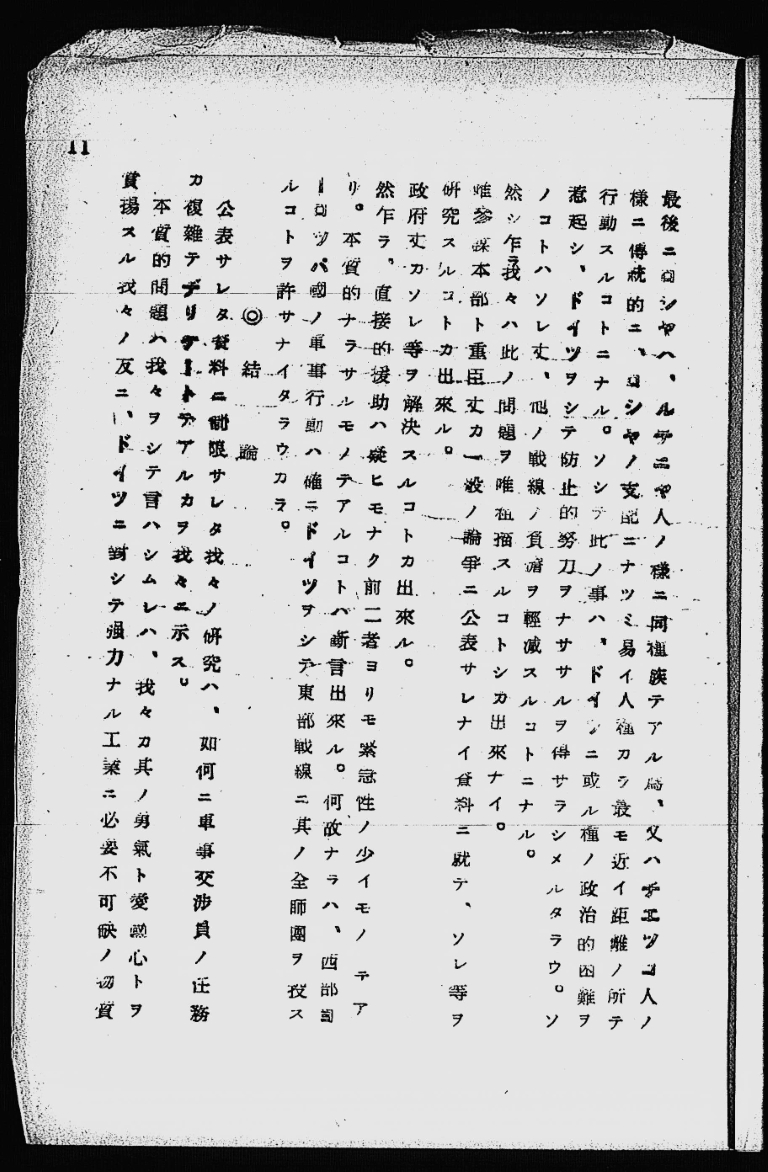 11
最後ニロシヤハ、ルテニヤ人ノ様ニ同種族テアル為、又ハチエツコ人ノ
様ニ傳統的ニ、ロシヤノ支配ニナツミ易イ人種カラ最モ近イ距離ノ所テ
行動スルコトニナル。ソシテ此ノ事ハ、ドイツニ或ル種ノ政治的困難ヲ
惹起シ、ドイツヲシテ防止的努力ヲナササルヲ得サラシメルタラウ。ソ
ノコトハソレ丈、他ノ戰線ノ負擔ヲ輕減スルコトニナル。
然シ乍ラ我々ハ此ノ問題ヲ唯粗描スルコトシカ出來ナイ。
唯參謀本部ト重臣丈カ一般ノ論爭ニ公表サレナイ資料ニ就テ、ソレ等ヲ
研究スルコトカ出來ル。
政府丈カソレ等ヲ解決スルコトカ出來ル。
然乍ラ、直接的援助ハ疑ヒモナク前二者ヨリモ緊急性ノ少イモノテア
リ。本質的ナラサルモノテアルコトハ斷言出來ル。何故ナラハ、西部ヨ
ーロツパ國ノ軍事行動ハ確ニドイツヲシテ東部戰線ニ其ノ全師團ヲ投ス
ルコトヲ許サナイタラウカラ。
◎結論
公表サレタ資料ニ制限サレタ我々ノ研究ハ、如何ニ軍事交渉員ノ任務
カ復雜テデリケートテアルカヲ我々ニ示ス。
本質的問題ハ我々ヲシテ言ハシムレハ、我々カ其ノ勇氣ト愛國心トヲ
賞揚スル我々ノ友ニ、ドイツニ對シテ强力ナル工業ニ必要不可缺ノ物質